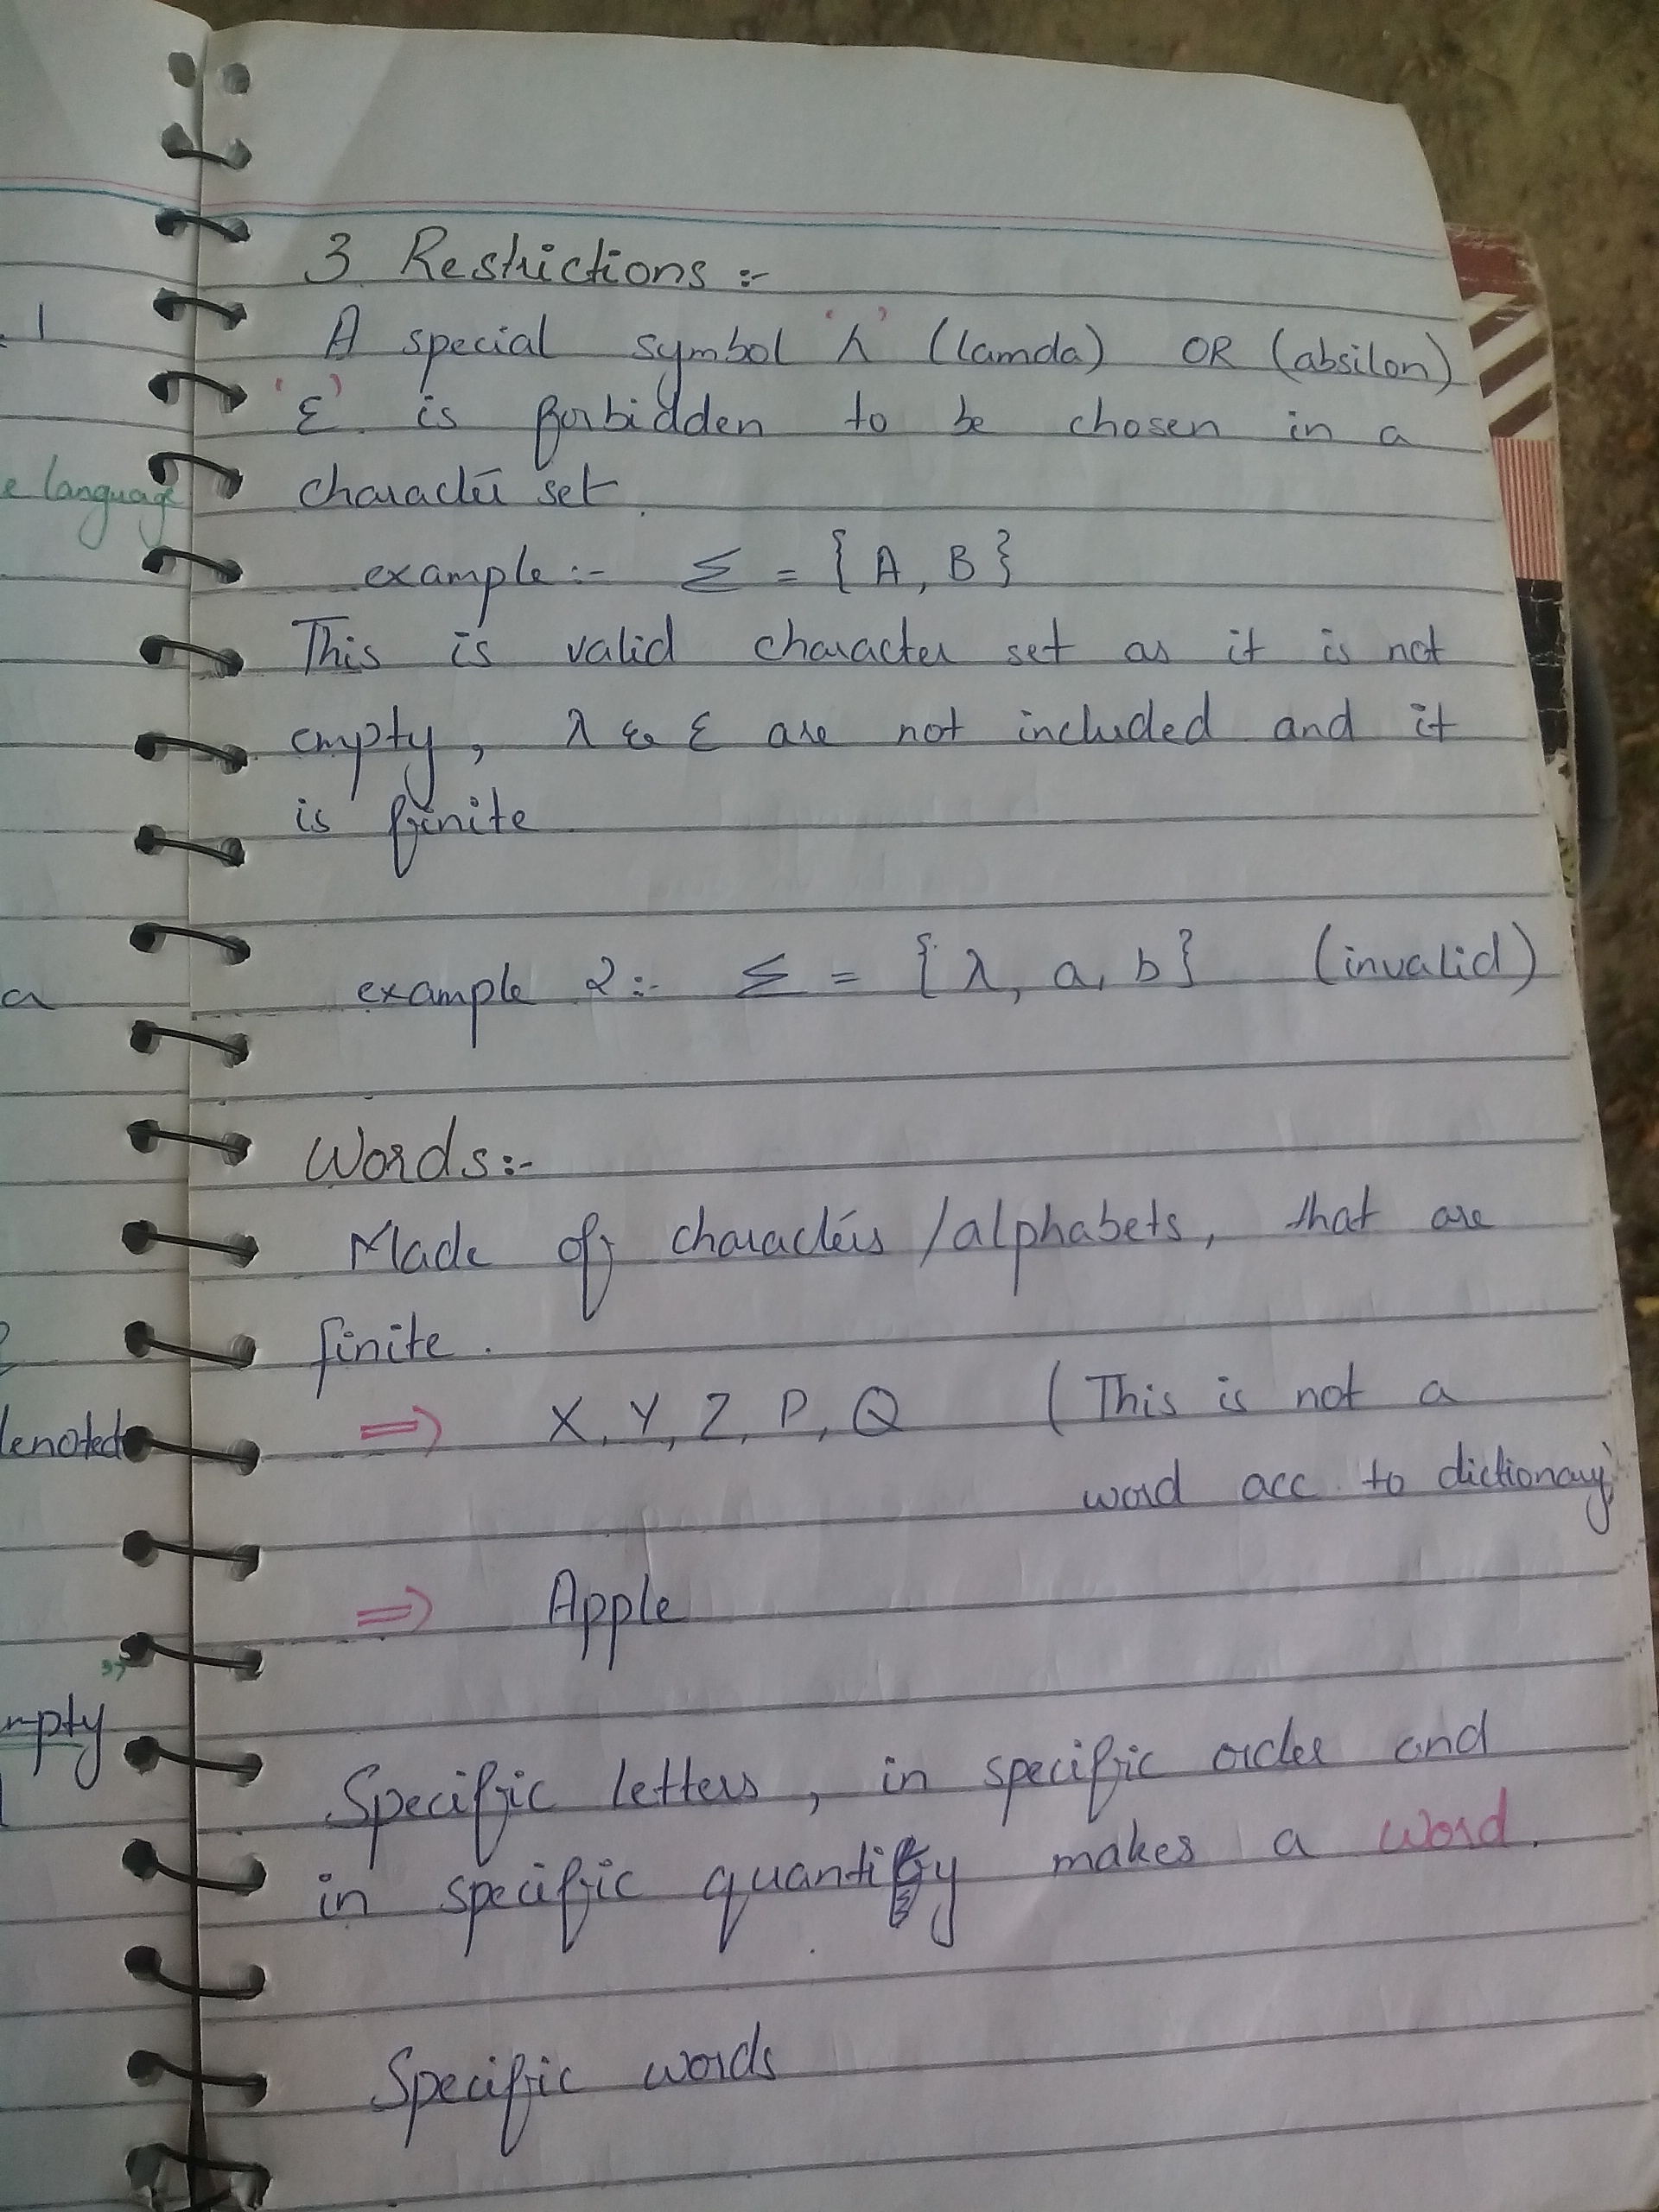 3 Restrictions :-
A special symbol 'λ' (lamda) OR (absilon)
'ε' is forbidden to be chosen in a
character set.
example :- Σ = {A, B}
This is valid character set as it is not
empty, λ & ε are not included and it
is finite
example 2 :- Σ = {λ, a, b} (invalid)
Words :-
Made of characters / alphabets, that are
finite.
⇒ X, Y, Z, P, Q (This is not a
word acc. to dictionary)
⇒ Apple
Specific letters, in specific order and
in specific quantity makes a word.
Specific words
1
e language
a
denoted
mpty